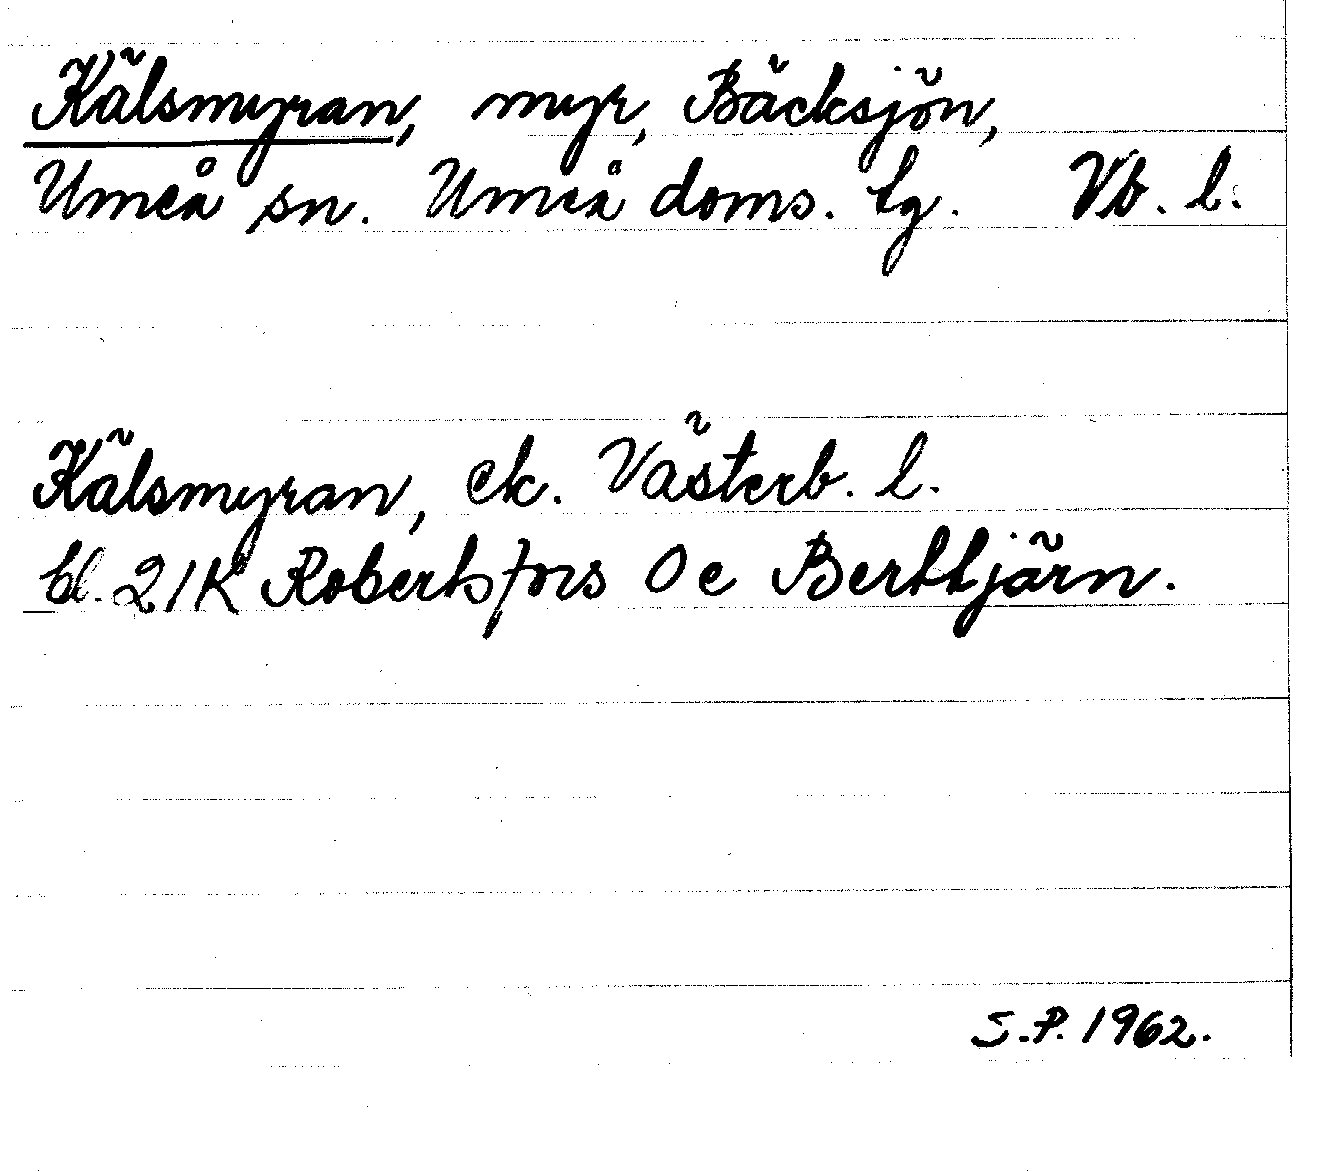 Kälsmyran, myr, Bäcksjön,
Umeå sn. Umeå doms. tg. Vb. l.
Kälsmyran, ek. Västerb. l.
bl. 21K Robertsfors 0 e Berttjärn.
S.P. 1962.